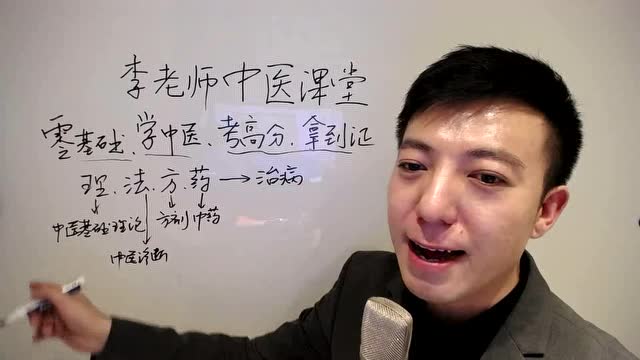 李老师中医课堂
零基础、学中医、考高分、拿到证
理.法.方.药→治病
中医基础理论 方剂 中药
中医诊断